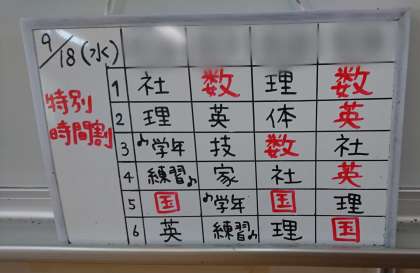 9/18(水)
特別
時間割
1 社 数 理 数
2 理 英 体 英
3 ♪学年 技 数 社
4 練習♪ 家 社 英
5 国 ♪学年 国 理
6 英 練習♪ 理 国